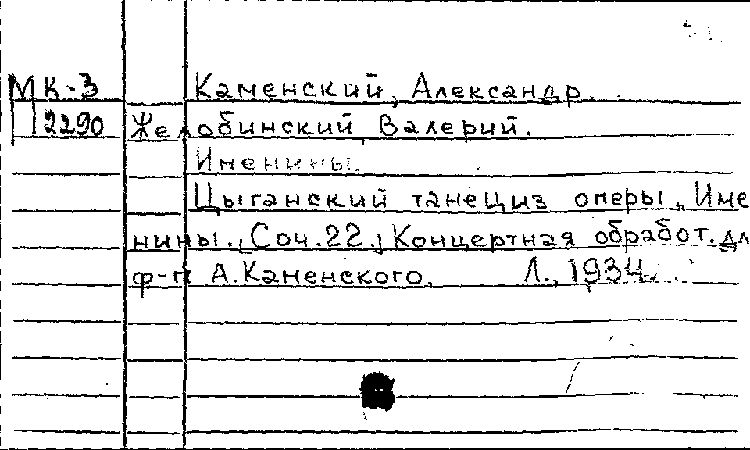 МК-3 Каменский, Александр.
2290 Желобинский, Валерий.
Именины.
Цыганский танец из оперы "Име
нины." Соч.22. Концертная обработ. дл
ф-п А.Каменского. Л., 1934.